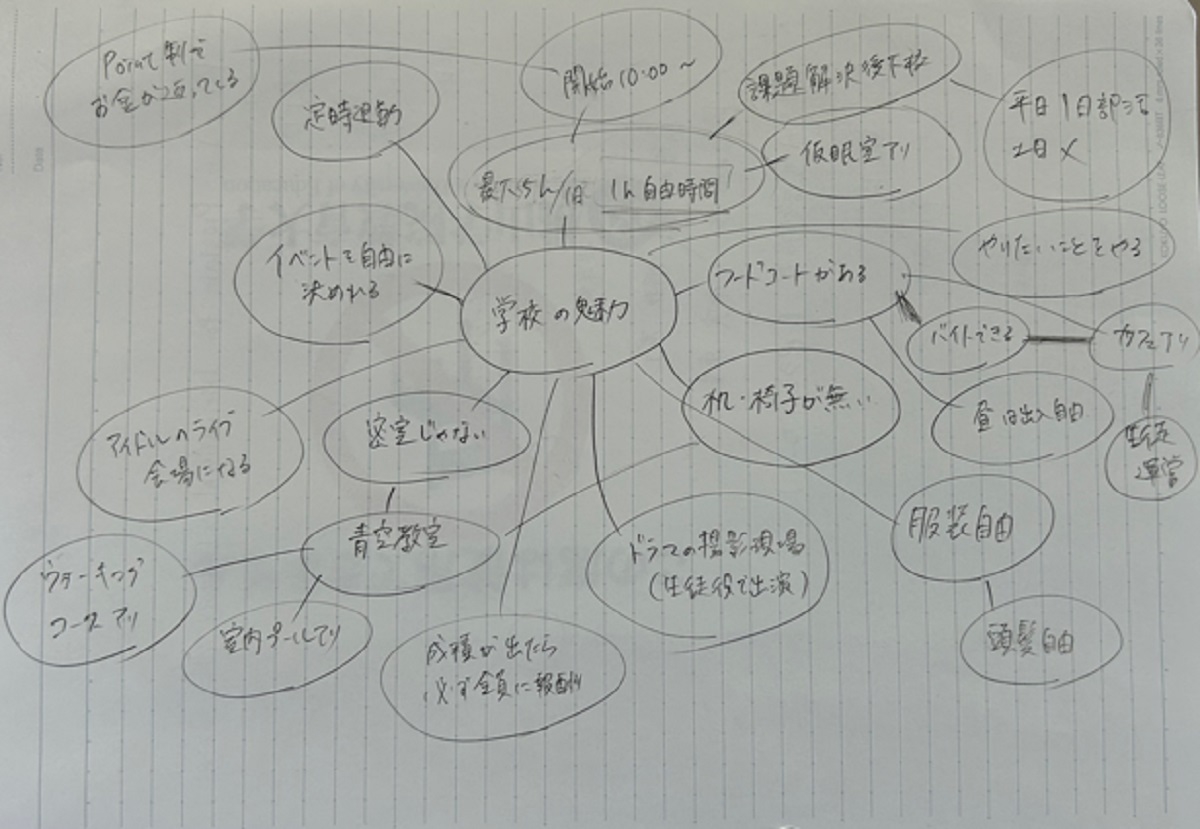 Point制で
お金が返ってくる
定時退勤
開始10:00～
課題解決後下校
平日1日部活
土日×
最大5h/1日 1h自由時間
仮眠室アリ
イベントを自由に
決めれる
学校の魅力
フードコートがある
やりたいことをやる
バイトできる
カフェアリ
生徒
運営
昼は出入自由
机・椅子が無い
密室じゃない
アイドルのライブ
会場になる
青空教室
ウォーキング
コースアリ
室内プールアリ
成績が出たら
必ず全員に報酬
ドラマの撮影現場
(生徒役で出演)
服装自由
頭髪自由